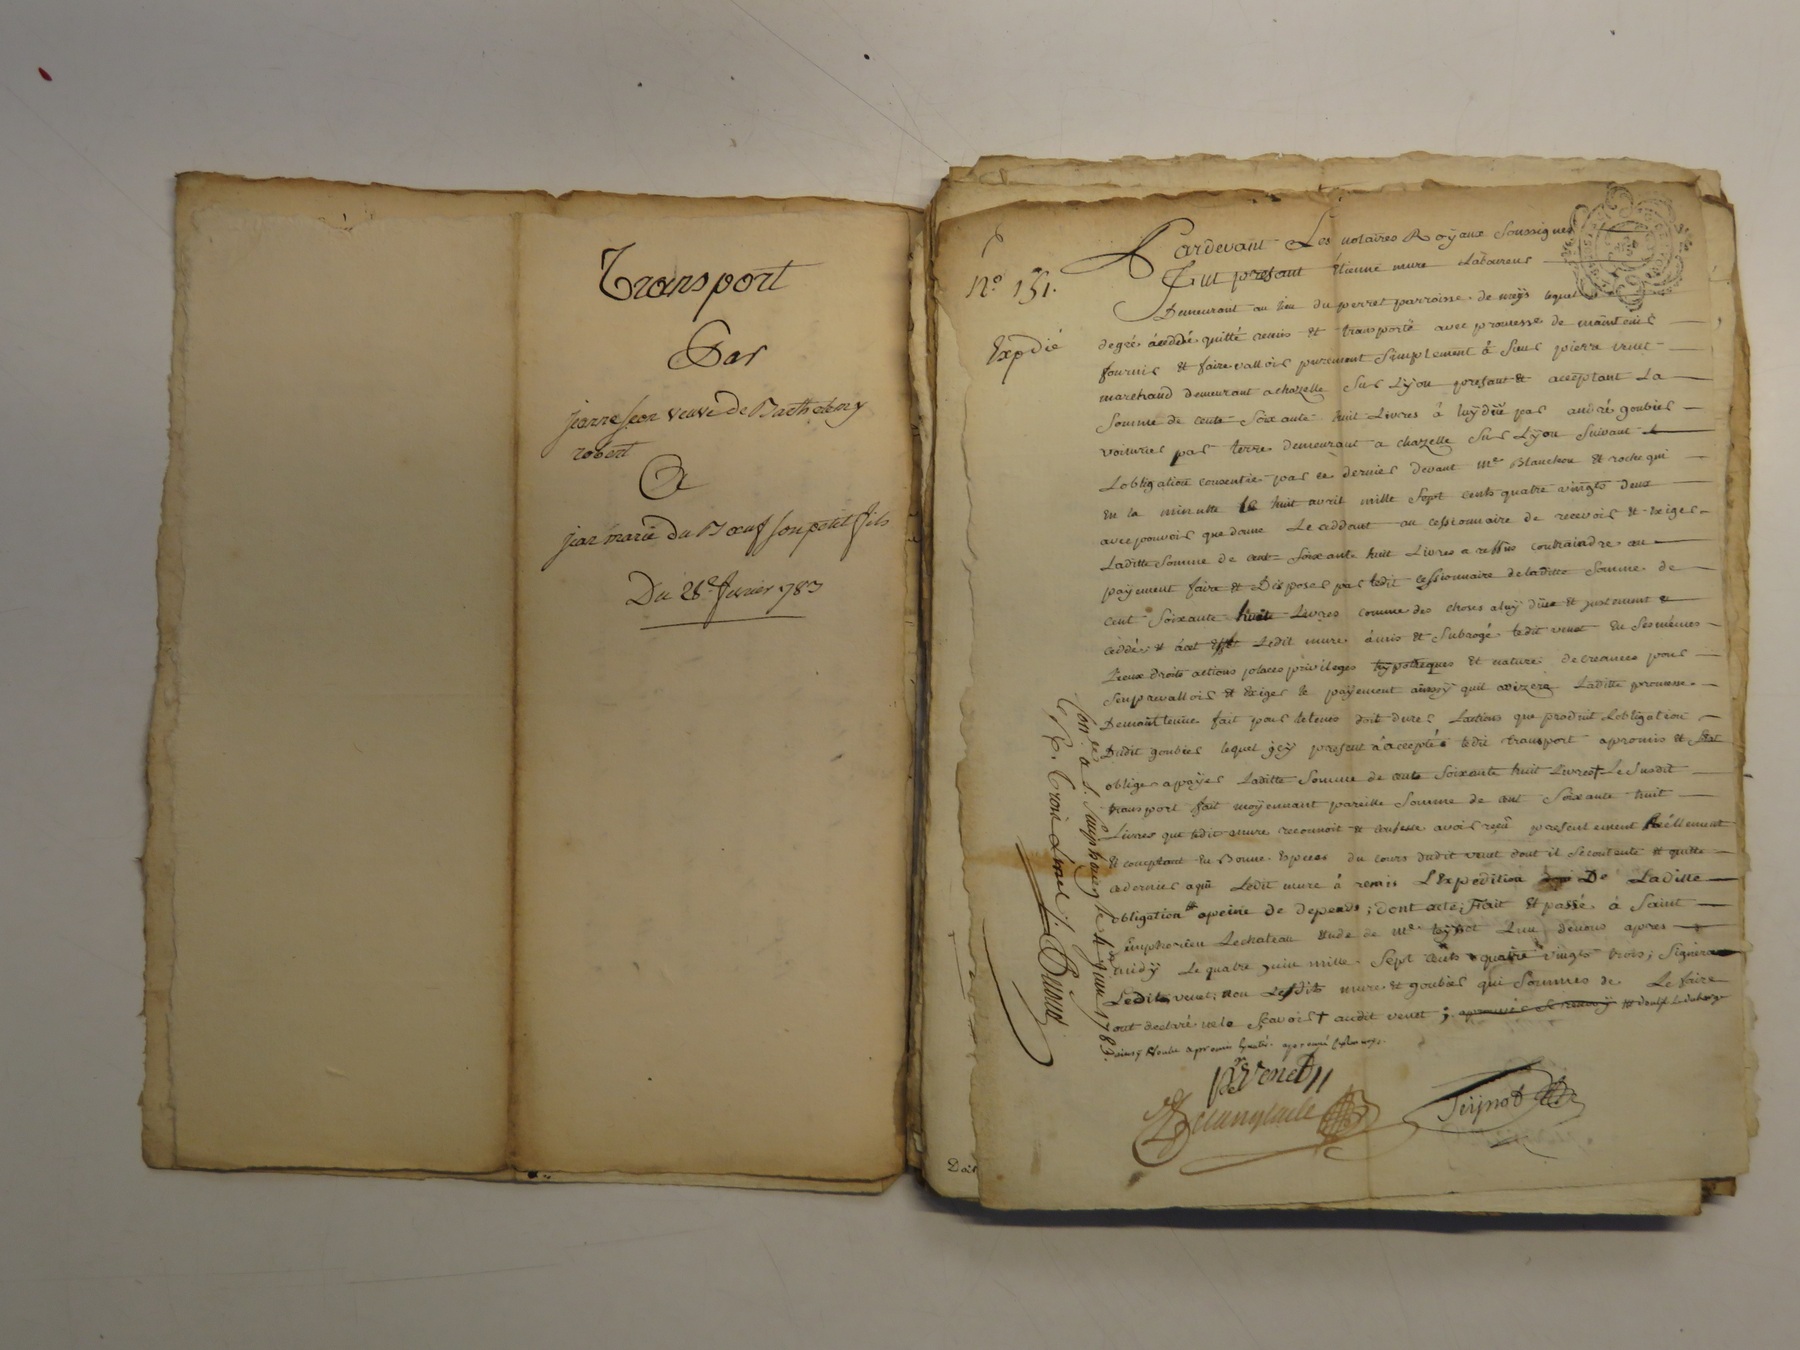 Transport
Par
jeanne jean veuve de Barthelemy
robert
A
jean marie du Bœuf son petit fils
Du 28e fevrier 1783
No. 151.
Expédié
Pardevant Les notaires Royaux Soussignés
Fut présant Etienne mure Laboureur
Demeurant au lieu du perret parroisse de lequel
degré à céddé quitté remis et transporté avec promesse de maintenir
fournir et faire valloir purement Simplement à Sieur pierre venet
marchand demeurant a chazelle Sur Lyon présant et acceptant La
Somme de cente Soixante huit Livres à luy düe par andré goubier
voiturier par terre demeurant a chazelle Sur Lyon Suivant
Lobligation consentie par ce dernier devant Me Blanchon et roche qui
En la minutte le huit avril mille Sept cents quatre vingts deux
avec pouvoir que donne Le céddant au cessionnaire de recevoir et Exiger
Laditte Somme de cent Soixante huit Livres a reffus contraindre au
payement faire et Disposer par ledit cessionnaire de laditte Somme de
cent Soixante huite Livres comme des choses a luy düe et justement
céddé et à cet Effet Ledit mure à mis et Subrogé ledit venet En Ses mêmes
Lieux droits actions places privileges hypotheques et nature de creances pour
Sen prevalloir et Exiger le payement ainsy quil avizera Laditte promesse
Demaintenue fait pour le tems doit durer Lactions que produit Lobligation
Dudit goubier lequel icy présent à accepté ledit transport a promis et
obligé a payer Laditte Somme de cente Soixante huit Livres + Le Susdit
transport fait moyennant pareille Somme de cent Soixante huit
Livres que ledit mure reconnoit et confesse avoir reçu présentement Réellement
et comptant En Bonne Espèces du cours dudit venet dont il Se contente et quitte
ce dernier a qui Ledit mure à remis L'Expédition De Laditte
obligation # a peine de depends ; dont acte ; Fait et passé à Saint
Simphorien Lechateau Etude de Me L'un denous apres
midy Le quatre juin mille Sept cents quatre vingts trois ; Signéra
Ledit venet ; non Lesdits mure et goubier qui Sommés de Le faire
ont declaré ne le Scavoir + audit venet ;
P.re Venet
Con.lé a S. Simphorien le 4 juin 1783.